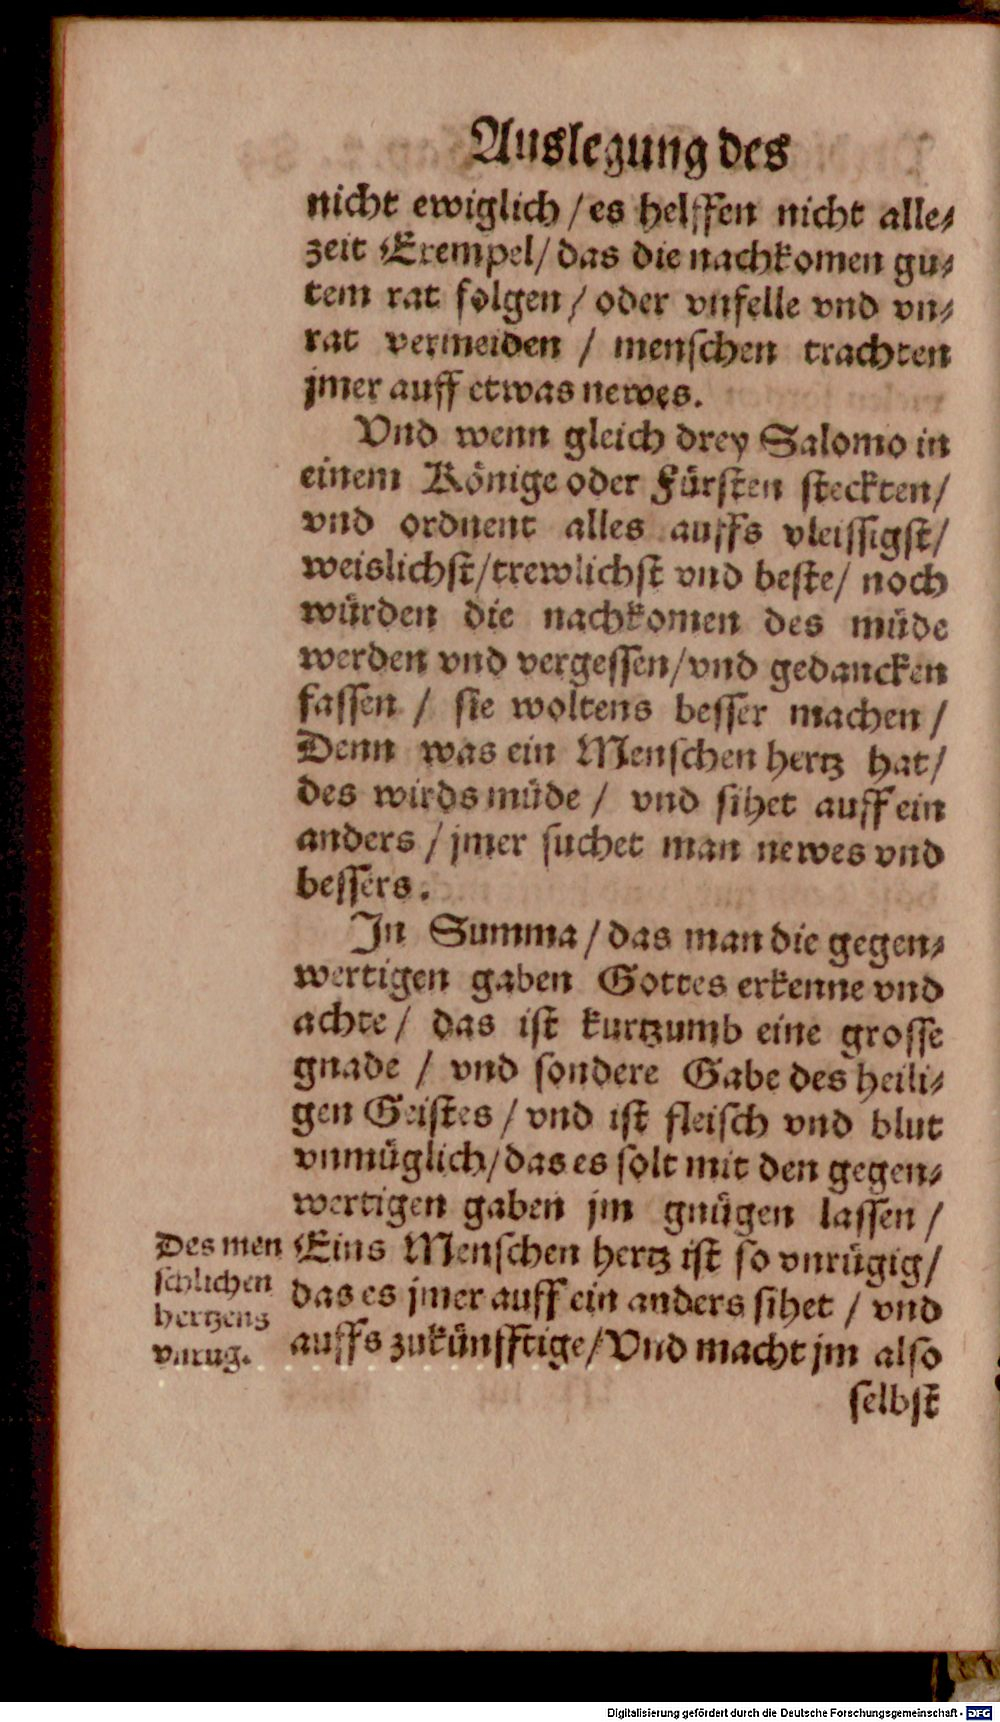 Auslegung des
nicht ewiglich / es helffen nicht alle-
zeit Exempel / das die nachkomen gu-
tem rat folgen / oder vnfelle vnd vn-
rat vermeiden / menschen trachten
jmer auff etwas newes.
Vnd wenn gleich drey Salomo in
einem Könige oder Fürsten steckten /
vnd ordnent alles auffs vleissigst /
weislichst / trewlichst vnd beste / noch
würden die nachkomen des müde
werden vnd vergessen / vnd gedancken
fassen / sie woltens besser machen /
Denn was ein Menschen hertz hat /
des wirds müde / vnd sihet auff ein
anders / jmer suchet man newes vnd
bessers.
In Summa / das man die gegen-
wertigen gaben Gottes erkenne vnd
achte / das ist kurtzumb eine grosse
gnade / vnd sondere Gabe des heili-
gen Geistes / vnd ist fleisch vnd blut
vnmüglich / das es solt mit den gegen-
wertigen gaben jm gnügen lassen /
Eins Menschen hertz ist so vnrügig /
das es jmer auff ein anders sihet / vnd
auffs zukünfftige / Vnd macht jm also
selbst
Des men
schlichen
hertzens
vnrug.
Digitalisierung gefördert durch die Deutsche Forschungsgemeinschaft - DFG